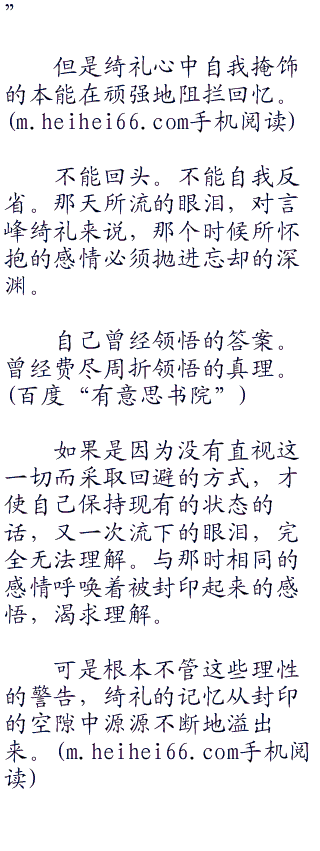 ”
但是绮礼心中自我掩饰
的本能在顽强地阻拦回忆。
(m.heihei66.com手机阅读)
不能回头。不能自我反
省。那天所流的眼泪，对言
峰绮礼来说，那个时候所怀
抱的感情必须抛进忘却的深
渊。
自己曾经领悟的答案。
曾经费尽周折领悟的真理。
(百度“有意思书院”)
如果是因为没有直视这
一切而采取回避的方式，才
使自己保持现有的状态的
话，又一次流下的眼泪，完
全无法理解。与那时相同的
感情呼唤着被封印起来的感
悟，渴求理解。
可是根本不管这些理性
的警告，绮礼的记忆从封印
的空隙中源源不断地溢出
来。(m.heihei66.com手机阅
读)